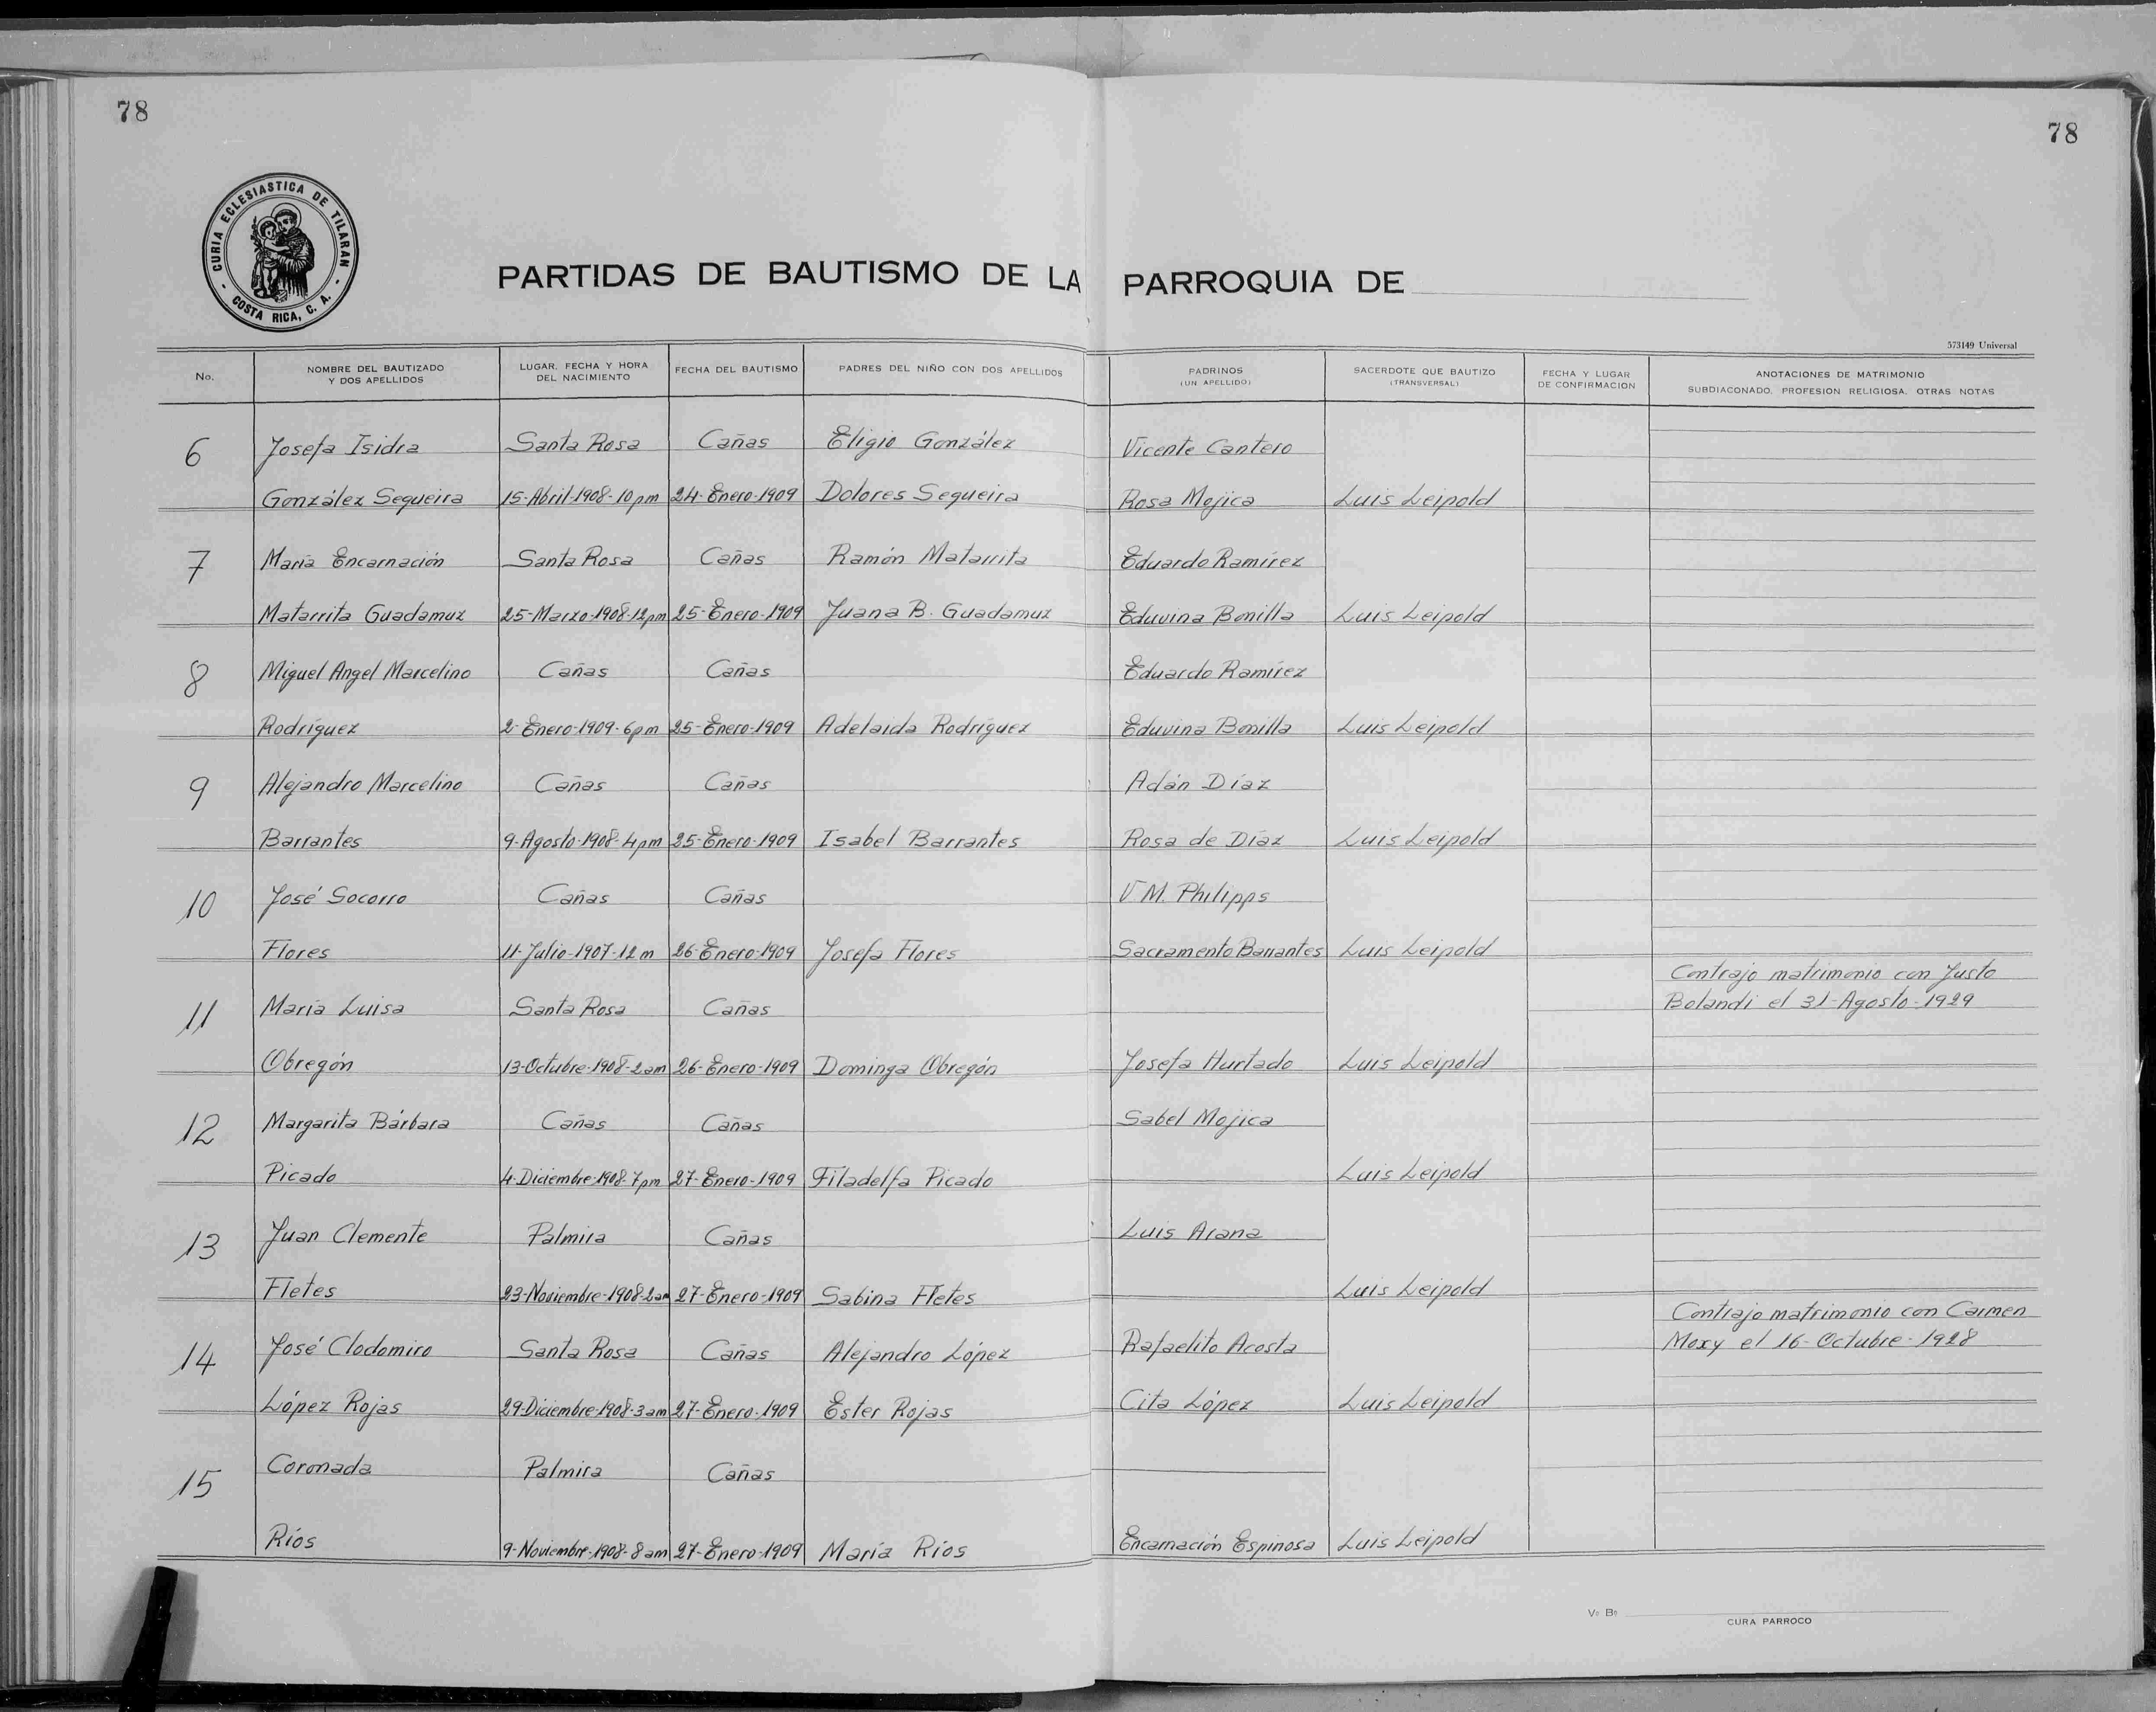 78
78
CURIA ECLESIASTICA DE TILARAN
- COSTA RICA, C. A. -
PARTIDAS DE BAUTISMO DE LA PARROQUIA DE
573149 Universal
No. NOMBRE DEL BAUTIZADO Y DOS APELLIDOS LUGAR, FECHA Y HORA DEL NACIMIENTO FECHA DEL BAUTISMO PADRES DEL NIÑO CON DOS APELLIDOS PADRINOS (UN APELLIDO) SACERDOTE QUE BAUTIZO (TRANSVERSAL) FECHA Y LUGAR DE CONFIRMACION ANOTACIONES DE MATRIMONIO SUBDIACONADO, PROFESION RELIGIOSA, OTRAS NOTAS
6 Josefa Isidra Santa Rosa Cañas Eligio González Vicente Cantero
González Sequeira 15-Abril-1908-10pm 24-Enero-1909 Dolores Sequeira Rosa Mojica Luis Leipold
7 María Encarnación Santa Rosa Cañas Ramón Matarrita Eduardo Ramírez
Matarrita Guadamuz 25-Marzo-1908-12pm 25-Enero-1909 Juana B. Guadamuz Eduvina Bonilla Luis Leipold
8 Miguel Angel Marcelino Cañas Cañas Eduardo Ramírez
Rodríguez 2-Enero-1909-6pm 25-Enero-1909 Adelaida Rodríguez Eduvina Bonilla Luis Leipold
9 Alejandro Marcelino Cañas Cañas Adán Díaz
Barrantes 9-Agosto-1908-4pm 25-Enero-1909 Isabel Barrantes Rosa de Díaz Luis Leipold
10 José Socorro Cañas Cañas V. M. Philipps
Flores 11-Julio-1907-12m 26-Enero-1909 Josefa Flores Sacramento Barrantes Luis Leipold
Contrajo matrimonio con Justo
11 María Luisa Santa Rosa Cañas Bolandi el 31-Agosto-1929
Obregón 13-Octubre-1908-2am 26-Enero-1909 Dominga Obregón Josefa Hurtado Luis Leipold
12 Margarita Bárbara Cañas Cañas Sabel Mojica
Picado 4-Diciembre-1908-7pm 27-Enero-1909 Filadelfa Picado Luis Leipold
13 Juan Clemente Palmira Cañas Luis Arana
Fletes 23-Noviembre-1908-2am 27-Enero-1909 Sabina Fletes Luis Leipold
Contrajo matrimonio con Carmen
14 José Clodomiro Santa Rosa Cañas Alejandro López Rafaelito Acosta Moxy el 16-Octubre-1928
López Rojas 29-Diciembre-1908-3am 27-Enero-1909 Ester Rojas Cita López Luis Leipold
15 Coronada Palmira Cañas
Ríos 9-Noviembre-1908-8am 27-Enero-1909 María Ríos Encarnación Espinosa Luis Leipold
Vº Bº
CURA PARROCO